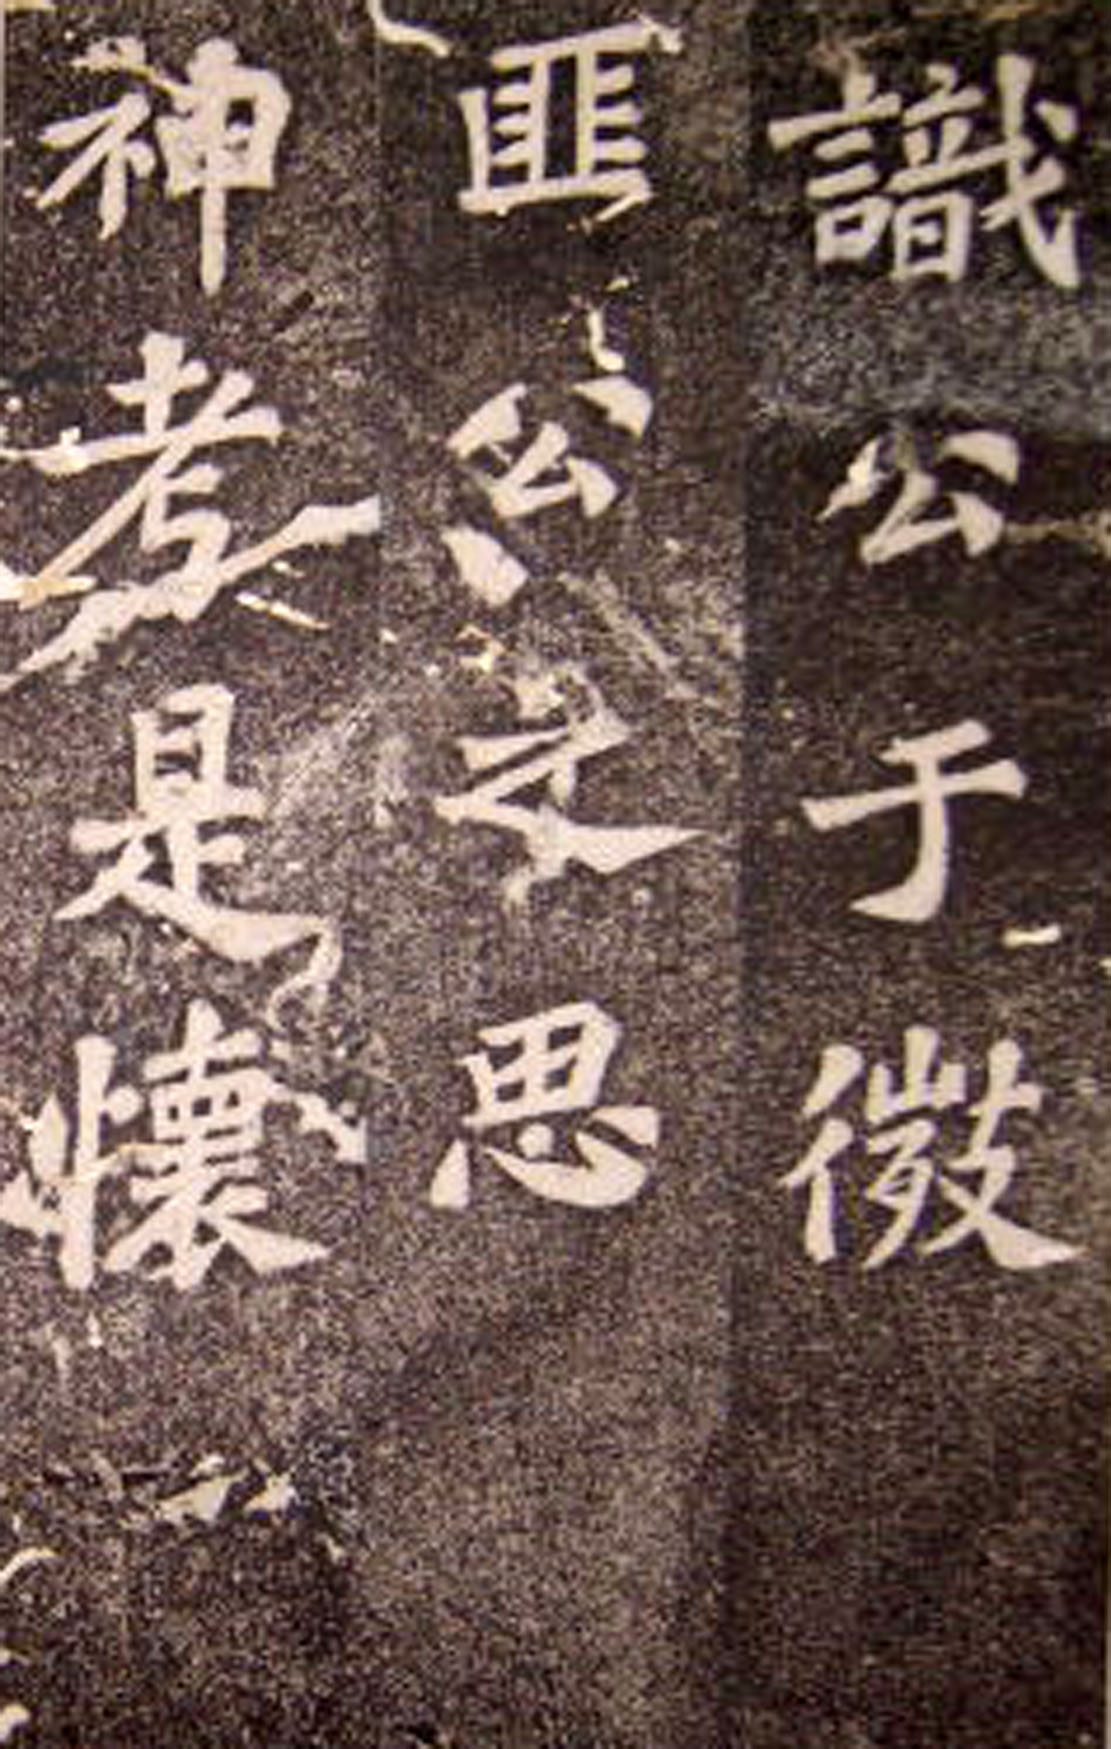 識公于微
匪公之思
神考是懷